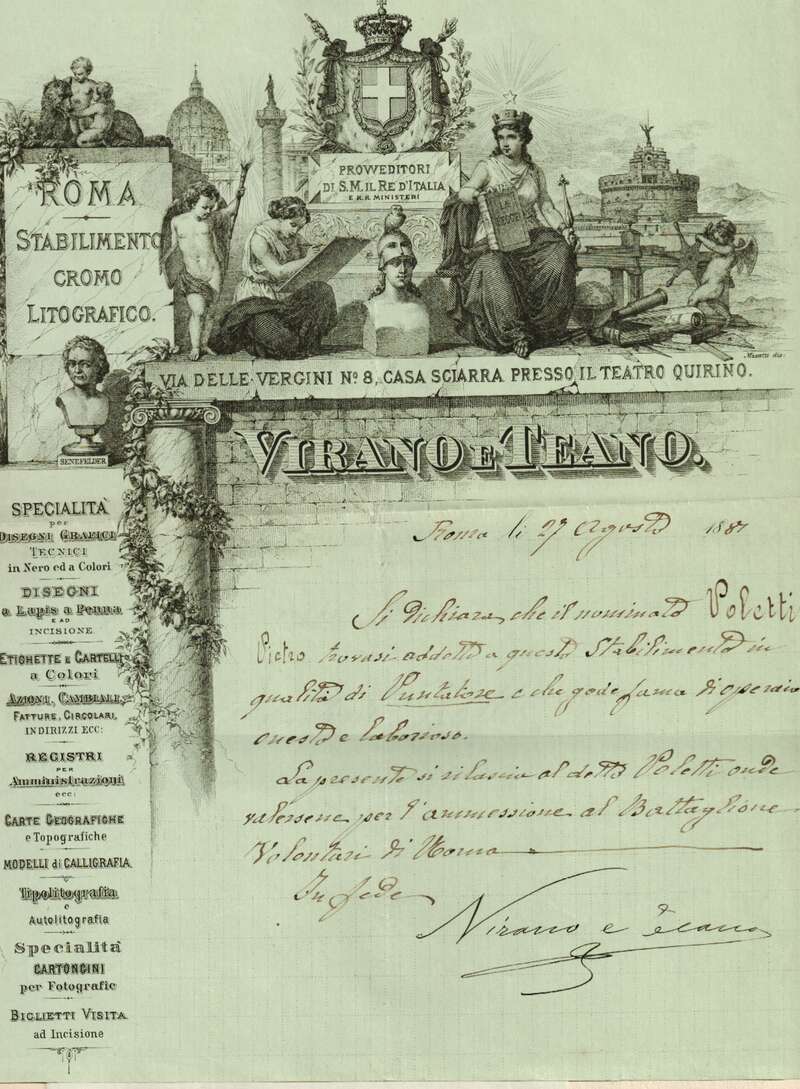 ROMA
STABILIMENTO
CROMO
LITOGRAFICO.
PROVVEDITORI
DI S.M. IL RE D'ITALIA
E R.R. MINISTERI
LA
LEGGE
Masutti dis.
VIA DELLE VERGINI No 8, CASA SCIARRA PRESSO IL TEATRO QUIRINO.
SENEFELDER
VIRANO E TEANO.
SPECIALITÀ
per
DISEGNI GRAFICI
TECNICI
in Nero ed a Colori
DISEGNI
a Lapis a Penna
E AD
INCISIONE
ETICHETTE E CARTELLI
a Colori
AZIONI, CAMBIALI,
FATTURE, CIRCOLARI,
INDIRIZZI ECC:
REGISTRI
PER
Amministrazioni
ecc:
CARTE GEOGRAFICHE
e Topografiche
MODELLI di CALLIGRAFIA
Tipolitografia
e
Autolitografia
Specialità
CARTONCINI
per Fotografie
BIGLIETTI VISITA
ad Incisione
Roma li 27 Agosto 188
Si dichiara, che il nominato Poletti
Pietro trovasi addetto a questo Stabilimento in
qualità di Puntatore e che gode fama di operaio
onesto e laborioso.
La presente si rilascia al detto Poletti onde
valersene per l'ammessione al Battaglione
Volontari di Roma
In fede
Virano e Teano